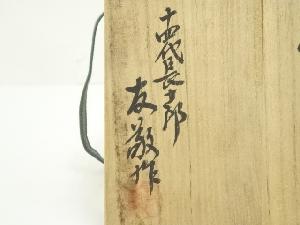 十四代長十郎
友敬作